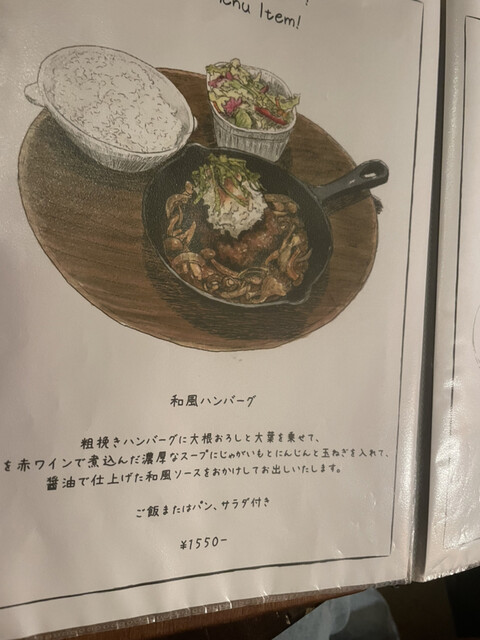 Item!
和風ハンバーグ
粗挽きハンバーグに大根おろしと大葉を乗せて、
を赤ワインで煮込んだ濃厚なスープにじゃがいもとにんじんと玉ねぎを入れて、
醤油で仕上げた和風ソースをおかけしてお出しいたします。
ご飯またはパン、サラダ付き
¥1550-